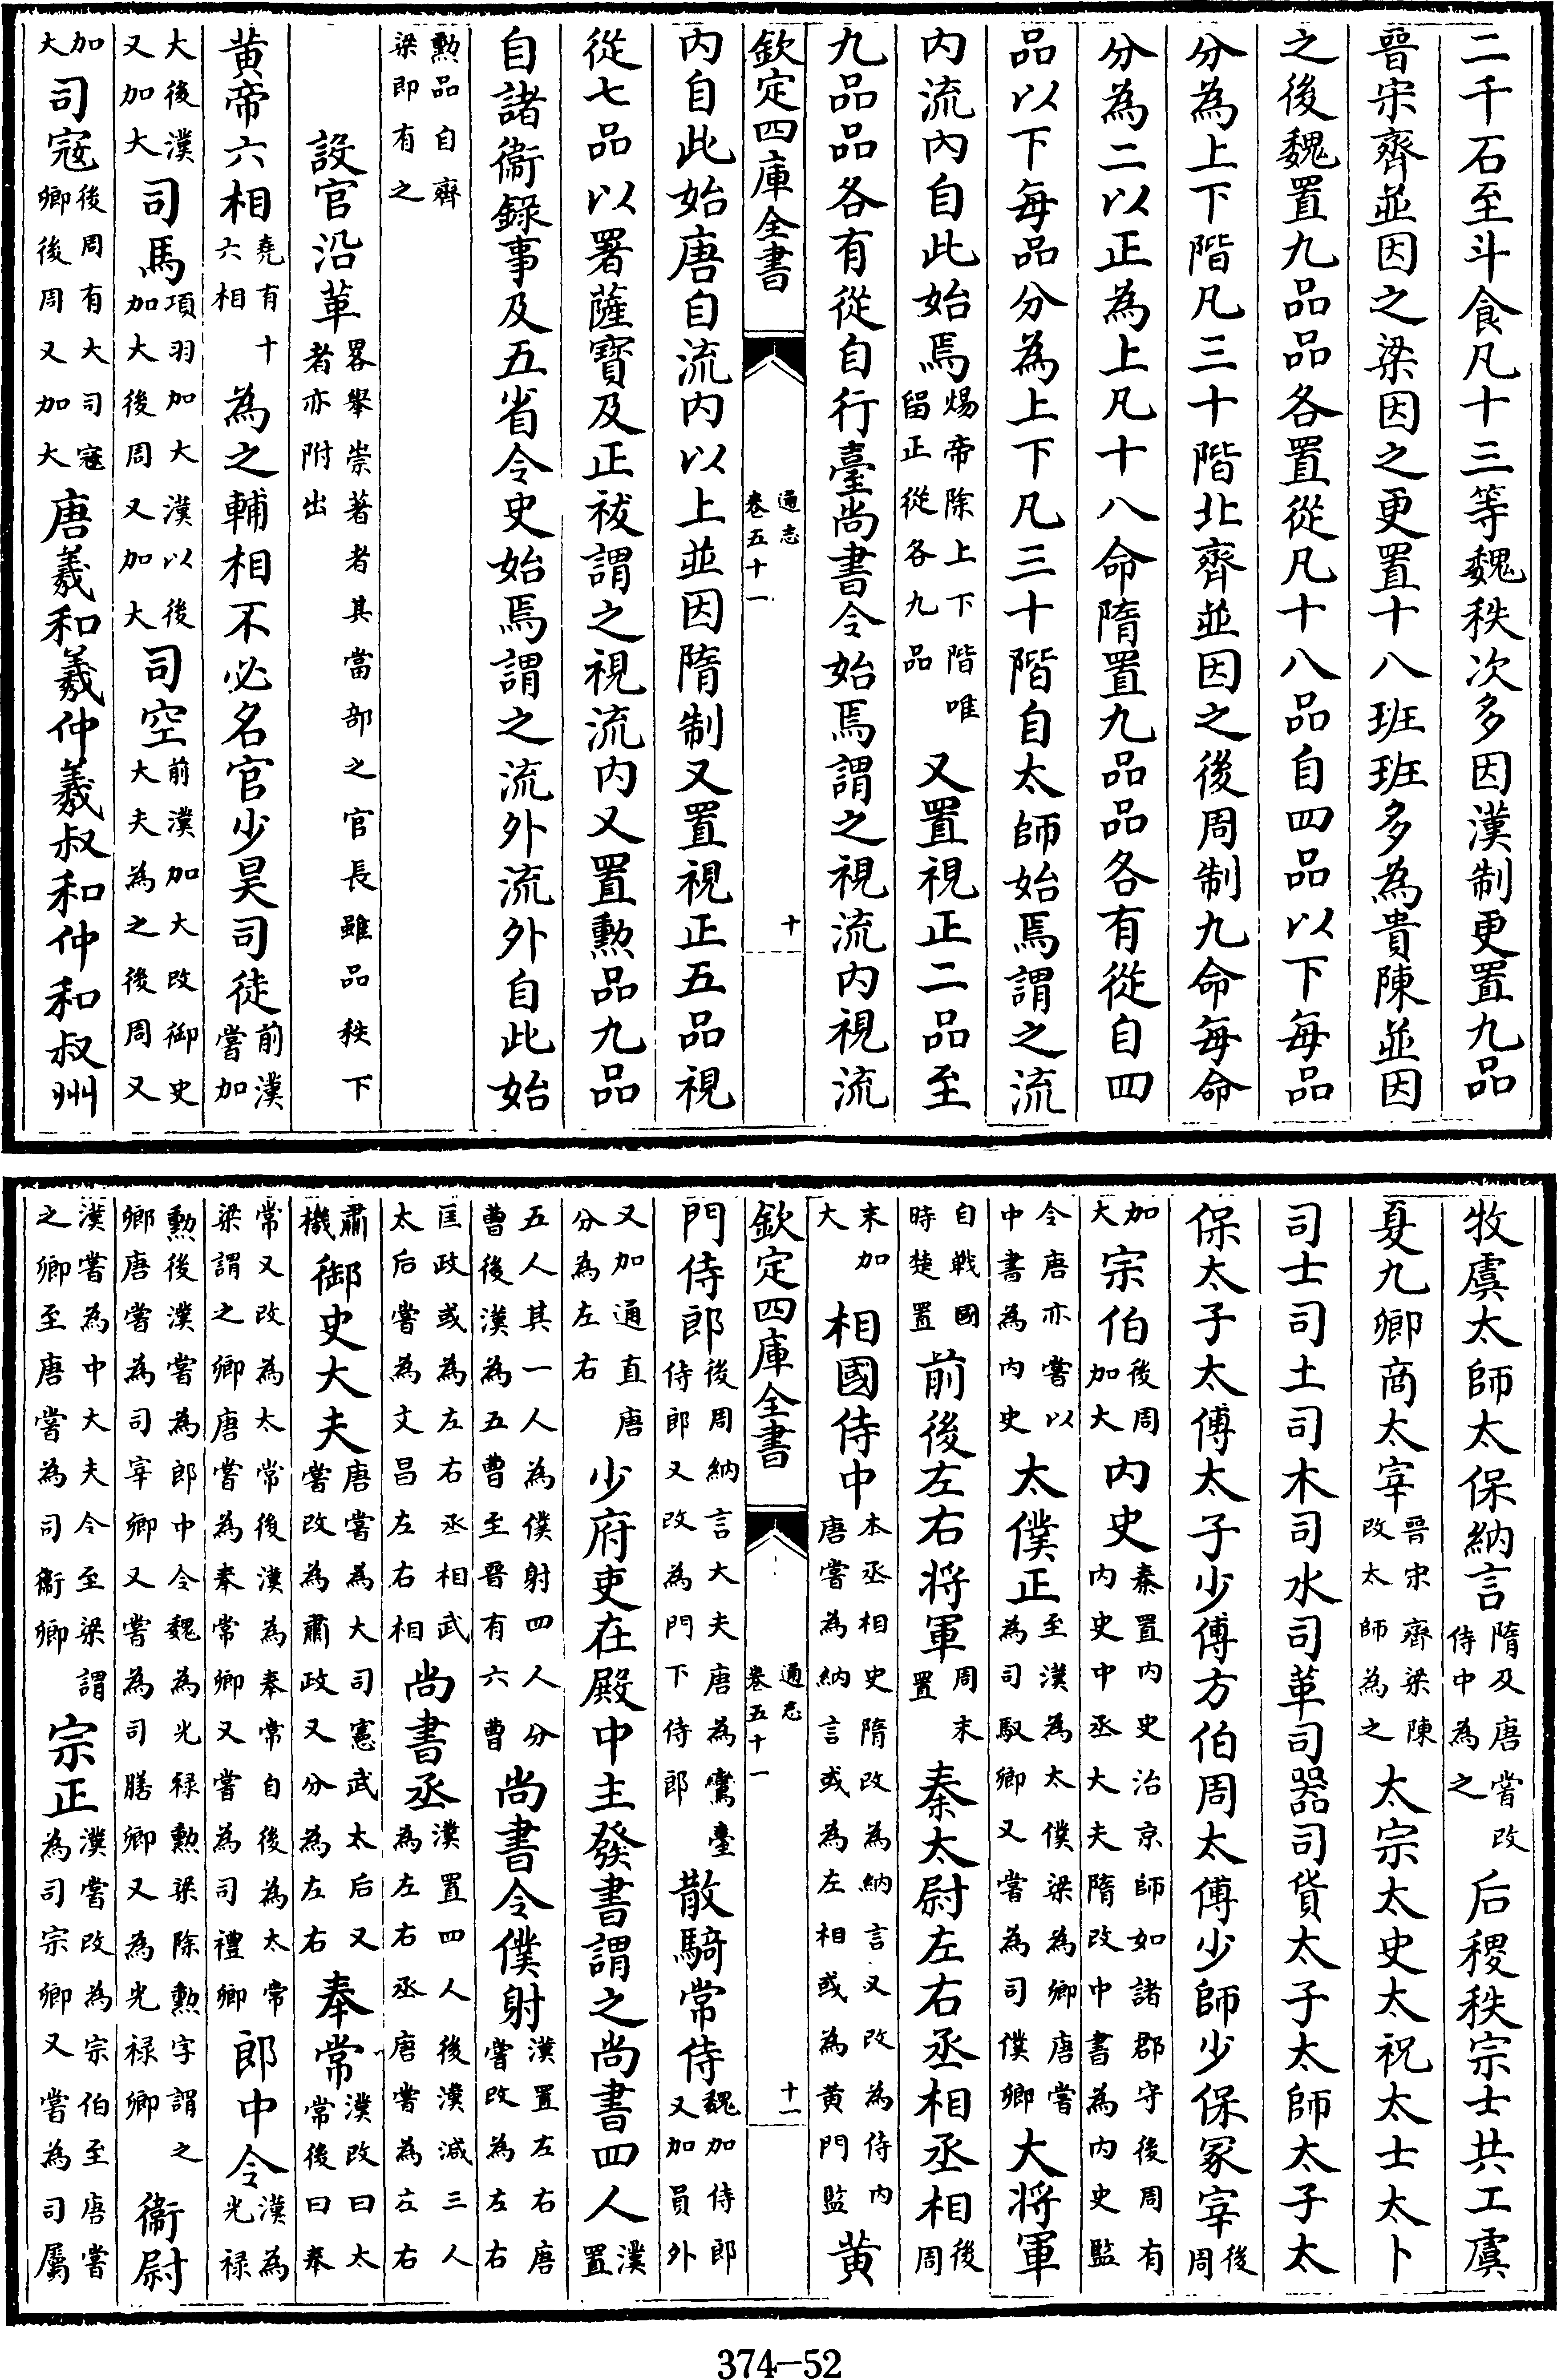 二千石至斗食凡十三等魏秩次多因漢制更置九品
晉宋齊並因之梁因之更置十八班班多為貴陳並因
之後魏置九品品各置從凡十八品自四品以下每品
分為上下階凡三十階北齊並因之後周制九命每命
分為二以正為上凡十八命隋置九品品各有從自四
品以下每品分為上下凡三十階自太師始焉謂之流
內流內自此始焉煬帝除上下階唯留正從各九品又置視正二品至
九品品各有從自行臺尚書令始焉謂之視流內視流
欽定四庫全書 通志卷五十一 十
內自此始唐自流内以上並因隋制又置視正五品視
從七品以署薩寳及正祓謂之視流内又置勲品九品
自諸衞錄事及五省令史始焉謂之流外流外自此始
勲品自齊梁即有之
設官沿革畧舉崇著者其當部之官長雖品秩下者亦附出
黄帝六相堯有十六相為之輔相不必名官少昊司徒前漢嘗加
大後漢又加大司馬項羽加大漢以後加大後周又加大司空前漢加大改御史大夫為之後周又
加大司寇後周有大司寇卿後周又加大唐羲和羲仲羲叔和仲和叔州
牧虞太師太保納言隋及唐嘗改侍中為之后稷秩宗士共工虞
夏九卿商太宰晉宋齊梁陳改太師為之太宗太史太祝太士太卜
司士司土司木司水司革司器司貨太子太師太子太
保太子太傅太子少傅方伯周太傅少師少保冢宰後周
加大宗伯後周加大内史秦置内史治京師如諸郡守後周有内史中丞大夫隋改中書為内史監
令唐亦嘗以中書為内史太僕正至漢為太僕梁為卿唐嘗為司馭卿又嘗為司僕卿大將軍
自戰國時楚置前後左右将軍周末置秦太尉左右丞相丞相後周
末加大相國侍中本丞相史隋改為納言又改為侍内唐嘗為納言或為左相或為黄門監黄
欽定四庫全書 通志卷五十一 十一
門侍郎後周納言大夫唐為鸞臺侍郎又改為門下侍郎散騎常侍魏加侍郎又加員外
又加通直唐分為左右少府吏在殿中主發書謂之尚書四人漢置
五人其一人為僕射四人分曹後漢為五曹至晉有六曹尚書令僕射漢置左右唐嘗改為左右
匡政或為左右丞相武太后嘗為文昌左右相尚書丞漢置四人後漢減三人為左右丞唐嘗為左右
肅機御史大夫唐嘗為大司憲武太后又嘗改為肅政又分為左右奉常漢改曰太常後曰奉
常又改為太常後漢為奉常自後為太常梁謂之卿唐嘗為奉常卿又嘗為司禮卿郎中令漢為光禄
勲後漢嘗為郎中令魏為光禄勲梁除勲字謂之卿唐嘗為司宰卿又嘗為司膳卿又為光禄卿衞尉
漢嘗為中大夫令至梁謂之卿至唐嘗為司衞卿宗正漢嘗改為宗伯至唐嘗為司宗卿又嘗為司屬
374-52